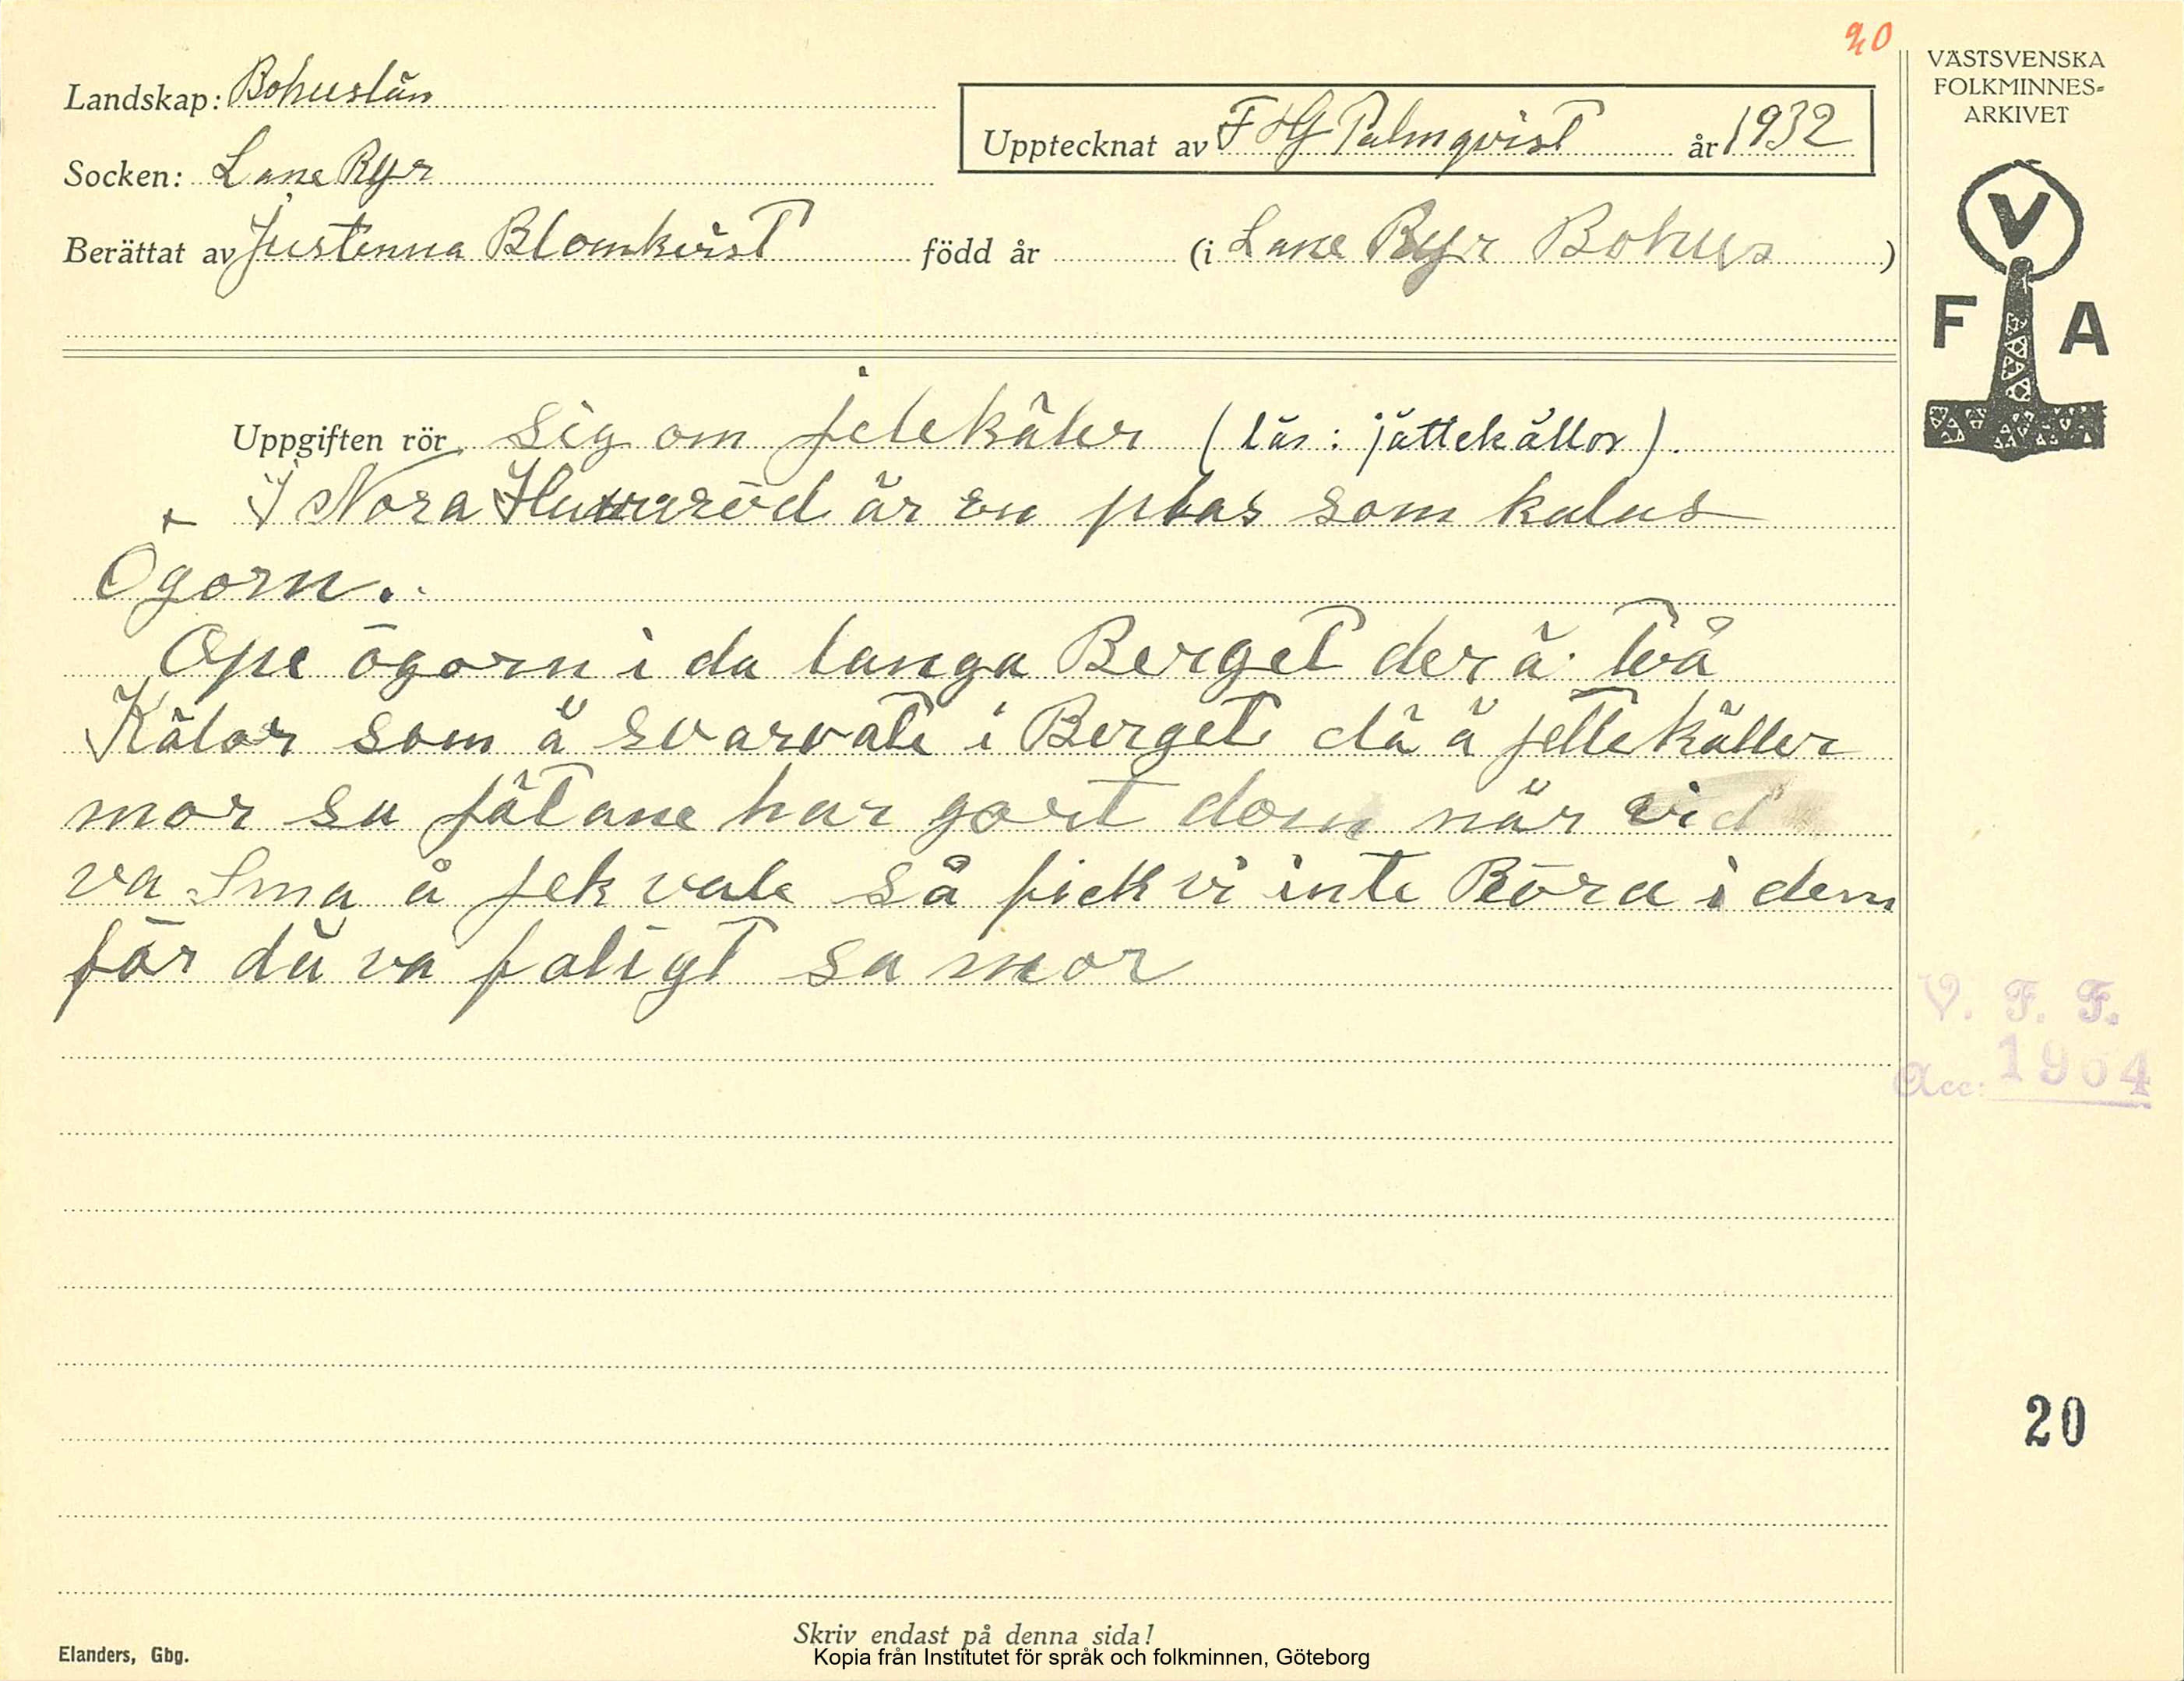 20
VÄSTSVENSKA
FOLKMINNES-
ARKIVET
Landskap: Bohuslän
Upptecknat av F HG Palmqvist år 1932
Socken: Lane Ryr
Berättat av Justenna Blomkvist född år (i Lane Ryr Bohus )
V
F A
Uppgiften rör Sig om jelekäler (läs: jättekällor).
I Nora är en plas som kalas
Ögorn.
Ope ögorn i da langa Berget der ä två
Kälor som ä svarvate i Berget dä ä jettekäller
mor sa jätane har gort dom när vi
va Sma å jek vale så fick vi inte Röra i dem
för dä va faligt sa mor
V. F. F.
Acc: 1964
20
Skriv endast på denna sida!
Elanders, Gbg.
Kopia från Institutet för språk och folkminnen, Göteborg